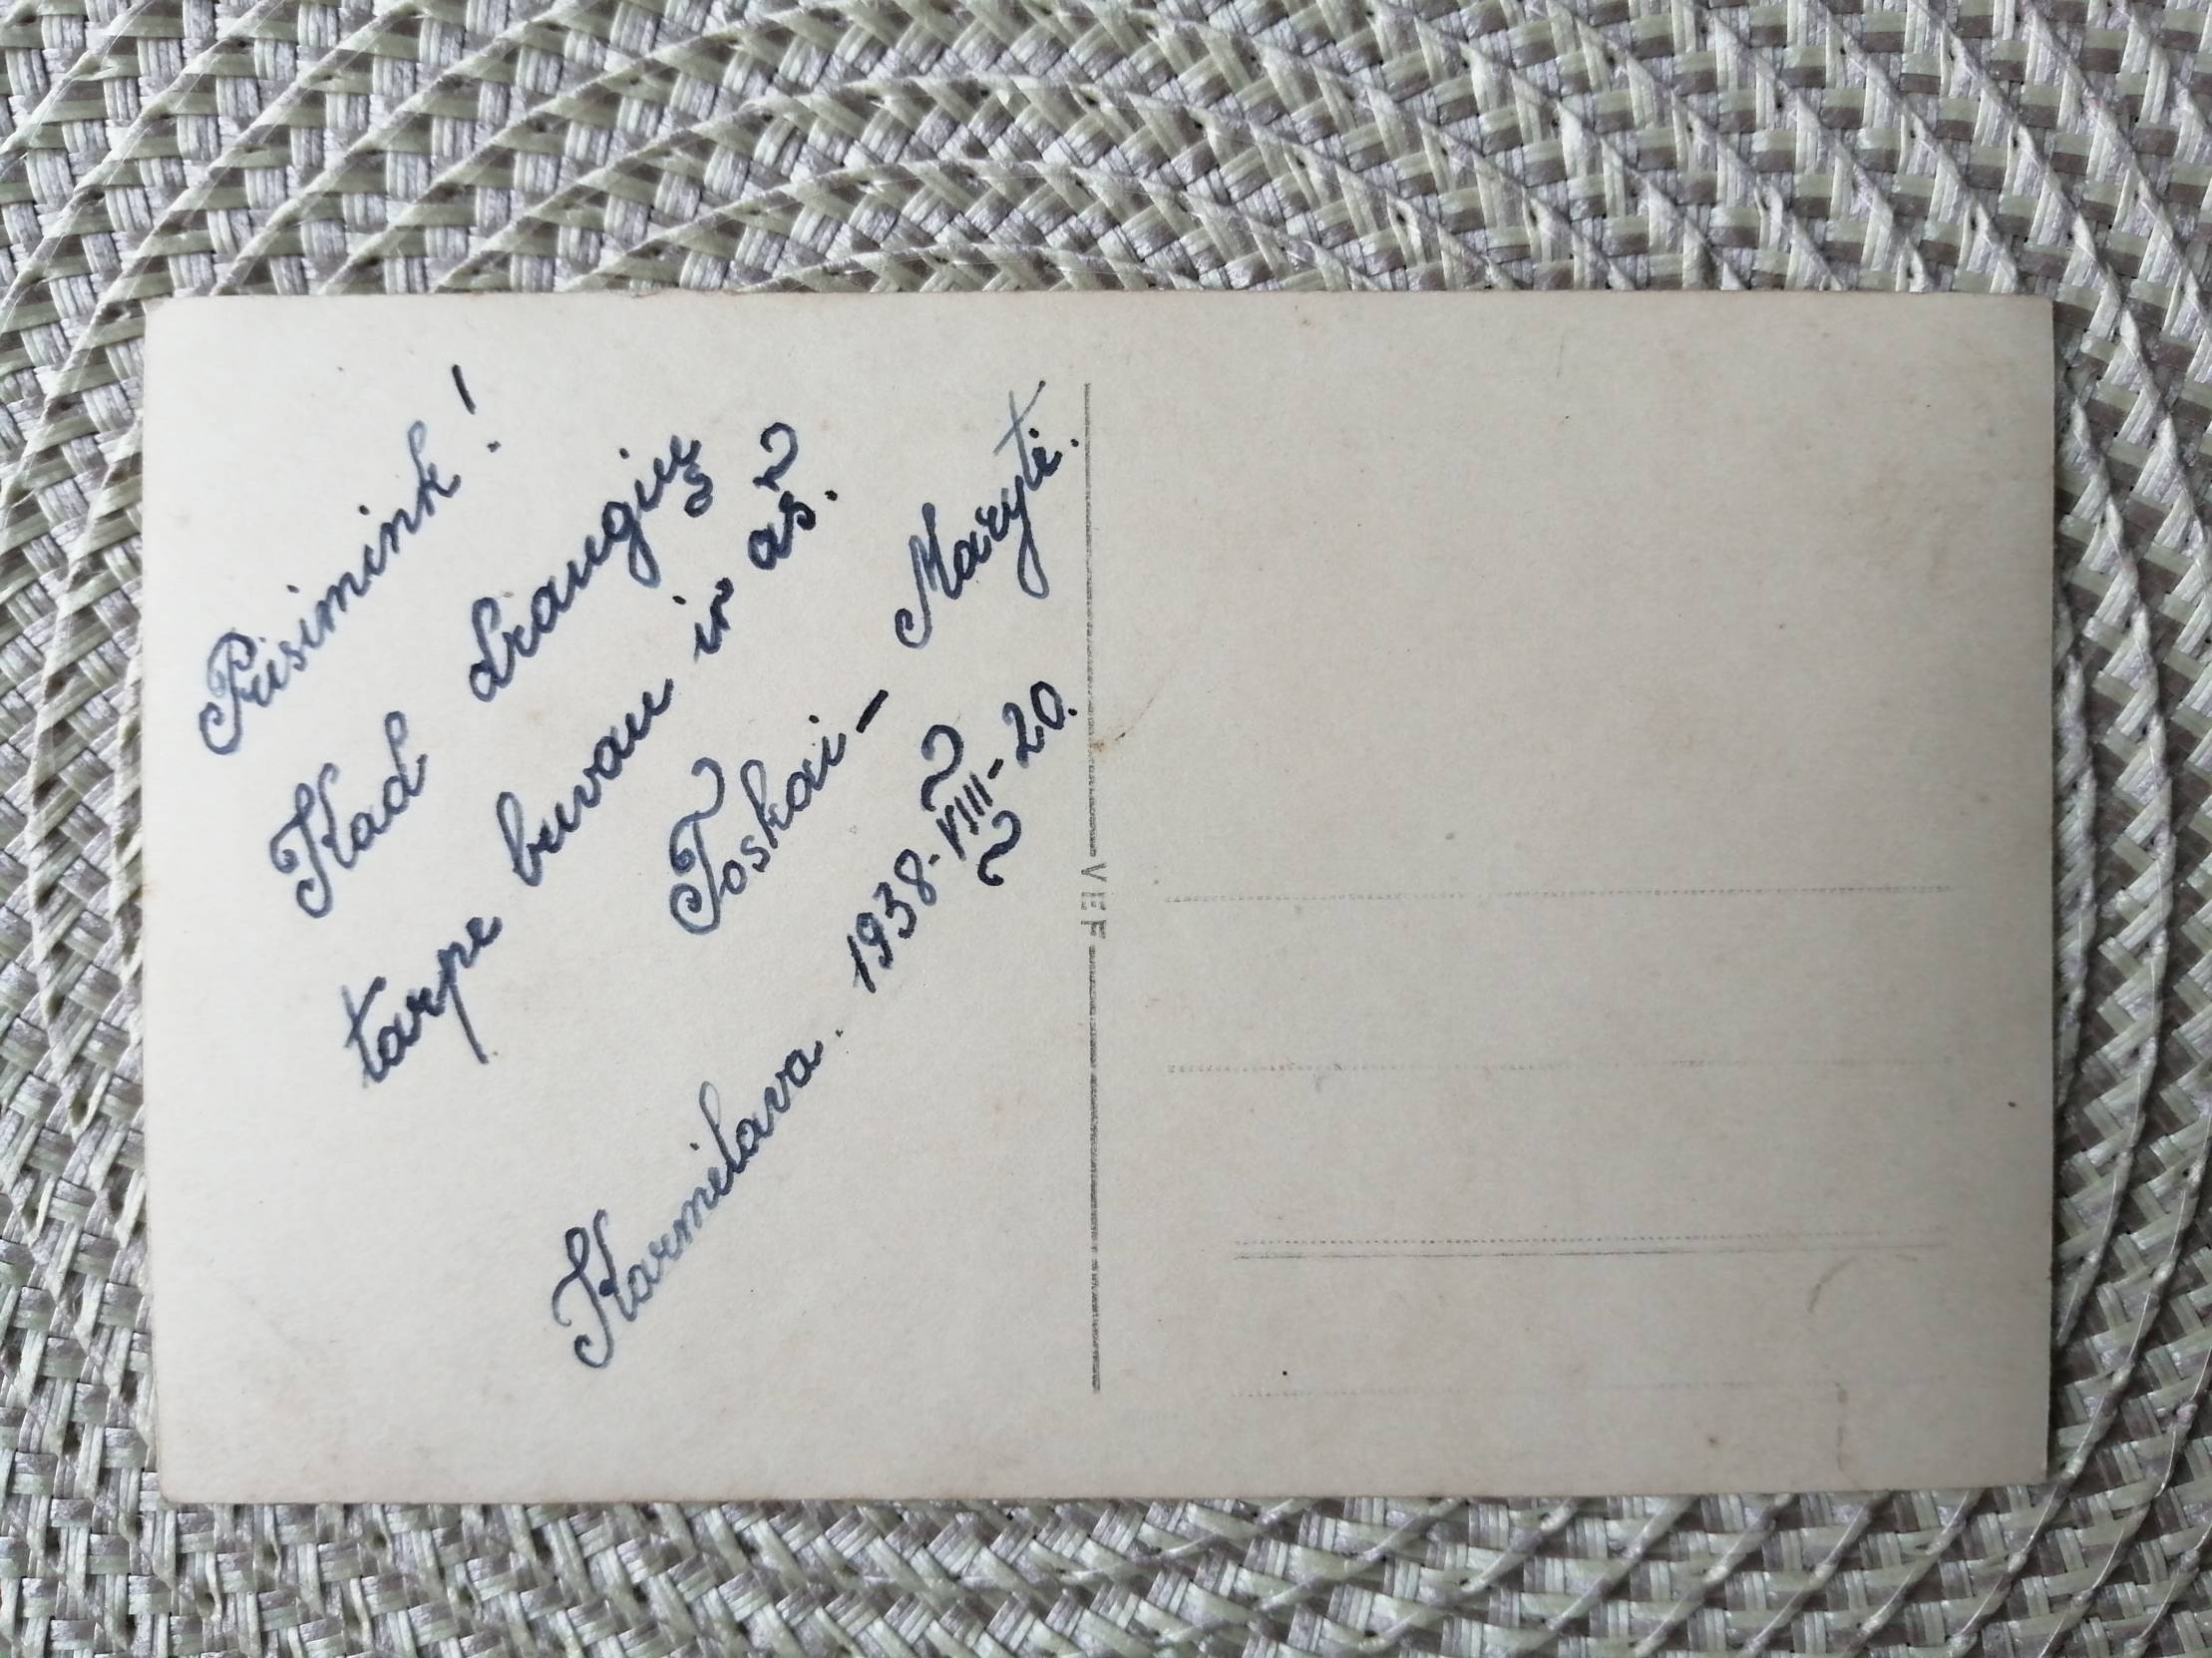 Prisimink!
Kad draugių
tarpe buvau ir aš.
Toskai - Marytė.
Karmėlava. 1938-VIII-20.
VEF